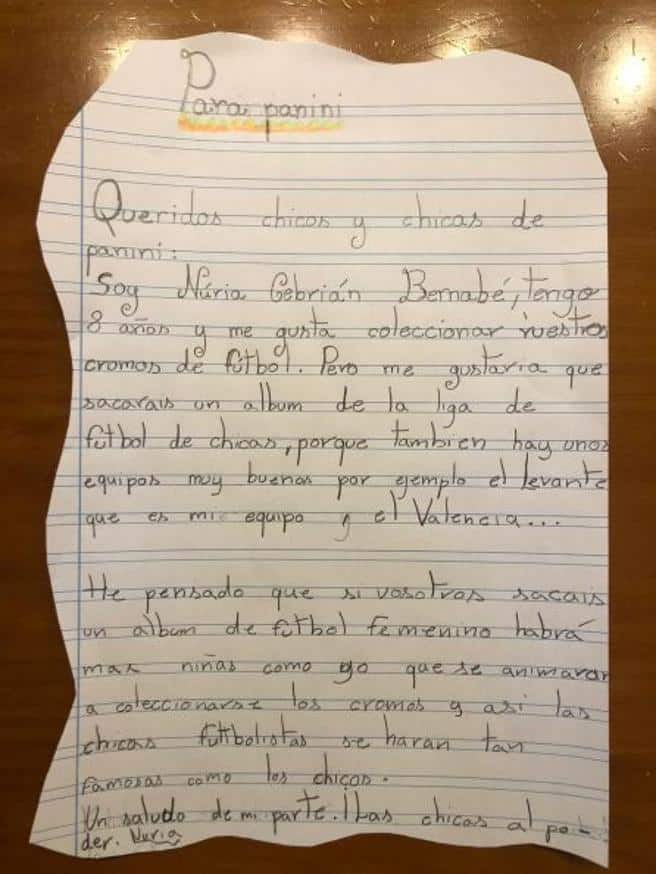 Para panini
Queridos chicos y chicas de
panini:
Soy Núria Cebrián Bernabé, tengo
8 años y me gusta coleccionar vuestros
cromos de fútbol. Pero me gustaria que
sacarais un album de la liga de
fútbol de chicas, porque tambien hay unos
equipos muy buenos por ejemplo el Levante
que es mi equipo y el Valencia...
He pensado que si vosotros sacais
un album de fútbol femenino habrá
mas niñas como yo que se animaran
a coleccionarse los cromos y asi las
chicas futbolistas se haran tan
famosas como los chicos.
Un saludo de mi parte. ¡Las chicas al po-
der. Nuria